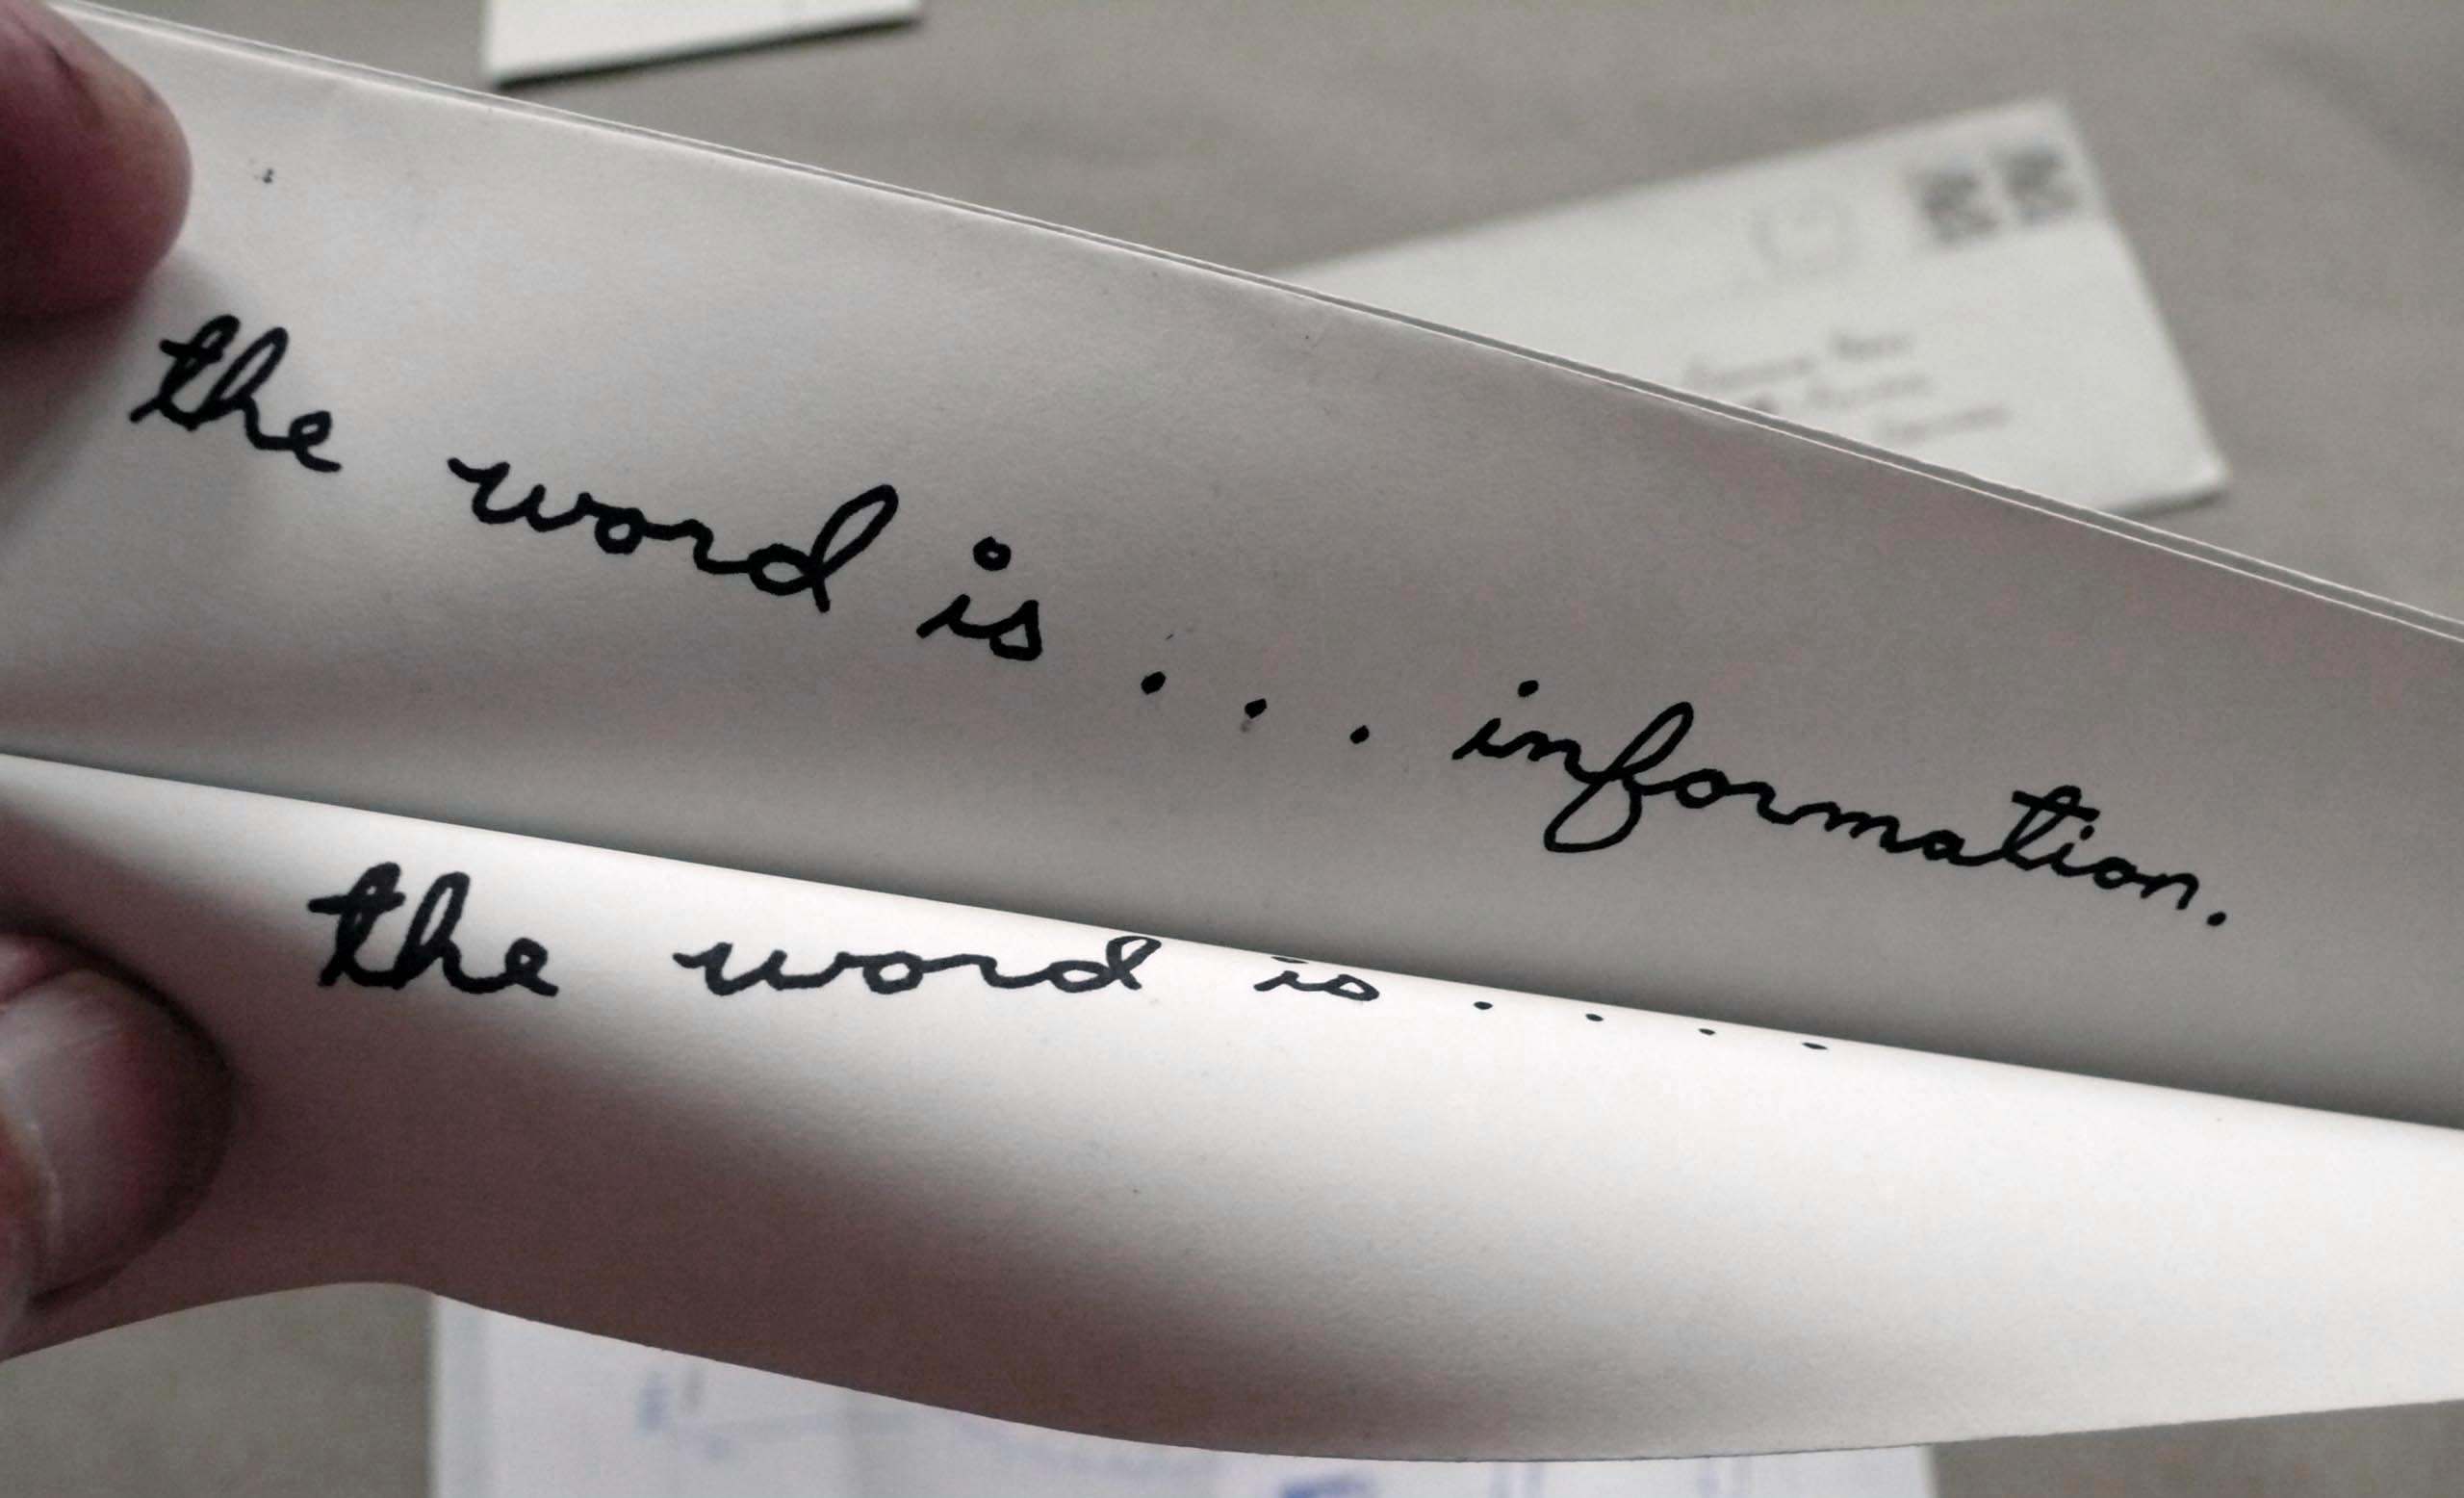 the word is... information.
the word is....